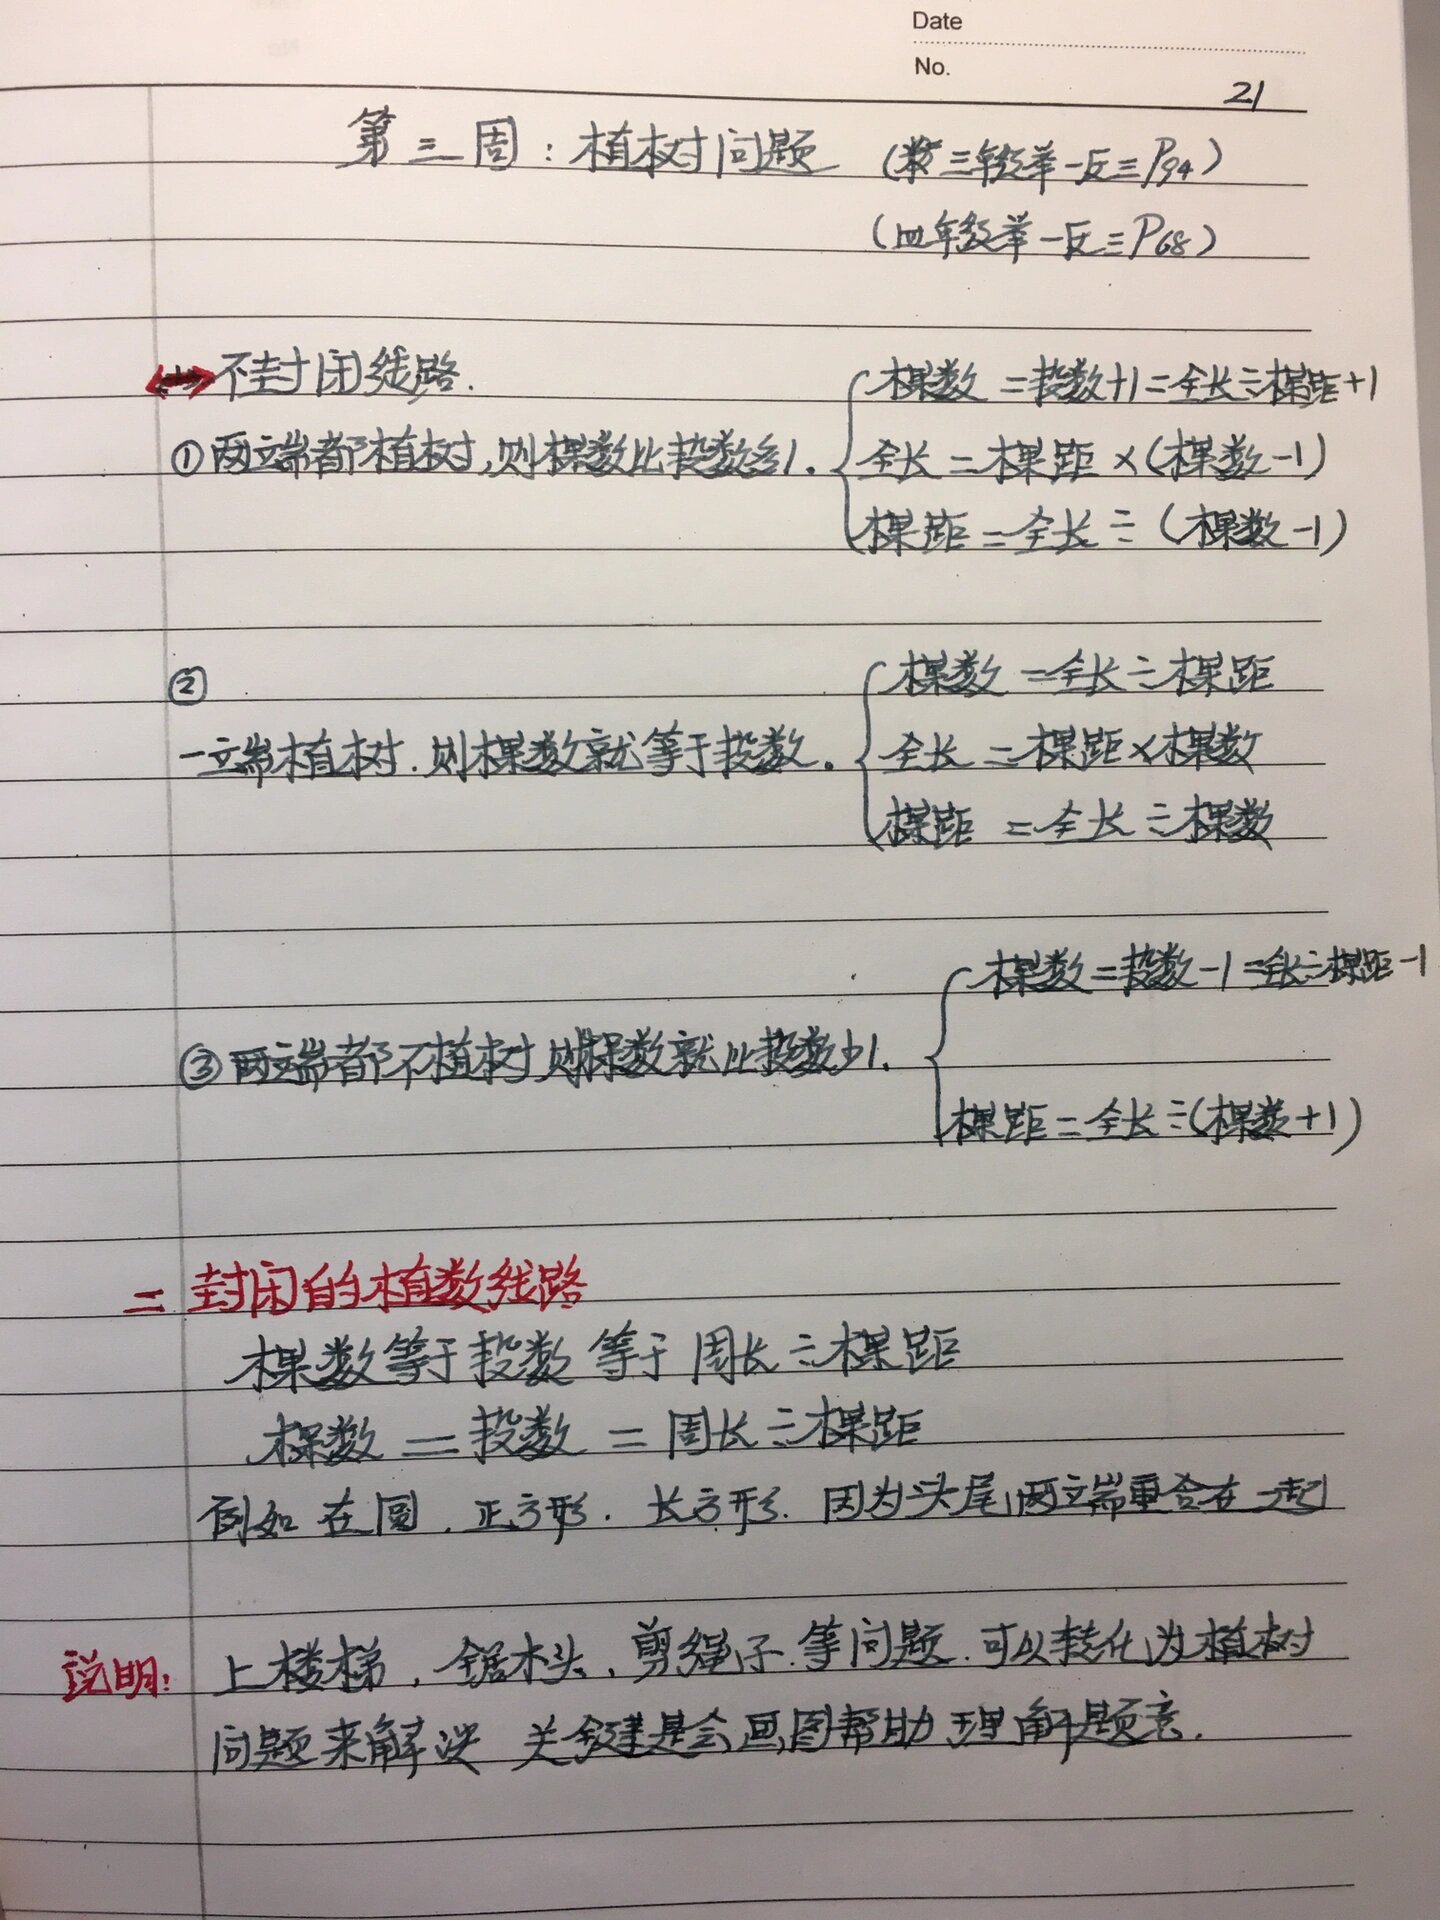 Date
No.
21
第三周：植树问题 (三年级举一反三P94)
(四年级举一反三P68)
不封闭线路.
①两端都植树,则棵数比段数多1.
棵数=段数+1=全长÷棵距+1
全长=棵距×(棵数-1)
棵距=全长÷(棵数-1)
②
一端植树.则棵数就等于段数.
棵数=全长÷棵距
全长=棵距×棵数
棵距=全长÷棵数
③两端都不植树,则棵数就比段数少1.
棵数=段数-1=全长÷棵距-1
棵距=全长÷(棵数+1)
二 封闭的植数线路
棵数等于段数等于周长÷棵距
棵数=段数=周长÷棵距
例如在圆.正方形.长方形.因为头尾两端重合在一起
说明:上楼梯,锯木头,剪绳子.等问题.可以转化为植树
问题来解决 关键是会画图帮助理解题意.